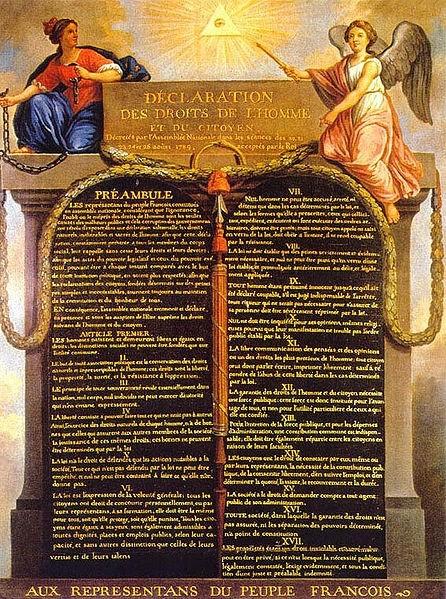 DÉCLARATION
DES DROITS DE L'HOMME
ET DU CITOYEN,
Décrétés par l'Assemblée Nationale dans les séances des 20, 21
23, 24 et 26 août 1789, acceptés par le Roi
PRÉAMBULE
LES représentans du peuple François, constitués
en assemblée nationale, considérant que l'ignorance,
l'oubli ou le mépris des droits de l'homme sont les seules
causes des malheurs publics et de la corruption des gouvernemens
ont résolu d'exposer dans une déclaration solemnelle, les droits
naturels, inaliénables et sacrés de l'homme; afin que cette décla-
ration, constamment présente à tous les membres du corps
social, leur rappelle sans cesse leurs droits et leurs devoirs;
afin que les actes du pouvoir législatif et ceux du pouvoir exé-
cutif, pouvant être à chaque instant comparés avec le but
de toute institution politique, en soient plus respectés; afin que
les réclamations des citoyens, fondées désormais sur des princi-
pes simples et incontestables, tournent toujours au maintien
de la constitution et du bonheur de tous.
EN conséquence, l'assemblée nationale reconnoit et déclare,
en présence et sous les auspices de l'Etre suprême les droits
suivans de l'homme et du citoyen.
ARTICLE PREMIER.
LES hommes naissent et demeurent libres et égaux en
droits; les distinctions sociales ne peuvent être fondées que sur
l'utilité commune.
II.
LE but de toute association politique est la conservation des droits
naturels et imprescriptibles de l'homme; ces droits sont la liberté,
la propriété, la sureté, et la résistance à l'oppression.
III.
LE principe de toute souveraineté réside essentiellement dans
la nation, nul corps, nul individu ne peut exercer d'autorité
qui n'en émane expressément.
IV.
LA liberté consiste à pouvoir faire tout ce qui ne nuit pas à autrui
Ainsi, l'exercice des droits naturels de chaque homme, n'a de bor-
nes que celles qui assurent aux autres membres de la société
la jouissance de ces mêmes droits; ces bornes ne peuvent
être déterminées que par la loi
V.
LA loi n'a le droit de défendre que les actions nuisibles à la
société. Tout ce qui n'est pas défendu par la loi ne peut être
empêché, et nul ne peut être contraint à faire ce qu'elle n'or-
donne pas.
VI.
LA loi est l'expression de la volonté générale; tous les
citoyens ont droit de concourir personnellement, ou par
leurs représentans, à sa formation; elle doit être la même
pour tous, soit qu'elle protege, soit qu'elle punisse. Tous les ci-
toyens étant égaux à ses yeux, sont également admissibles à
toutes dignités, places et emplois publics, selon leur ca-
pacité, et sans autres distinction que celles de leurs
vertus et de leurs talens
VII.
NUL homme ne peut être accusé, arreté, ni
détenu que dans les cas déterminés par la loi, et
selon les formes qu'elle a prescrites, ceux qui sollici-
tent, expédient, exécutent ou font exécuter des ordres ar-
bitraires, doivent être punis; mais tout citoyen appelé ou saisi
en vertu de la loi, doit obéir à l'instant, il se rend coupable
par la résistance.
VIII.
LA loi ne doit établir que des peines strictement et évidem-
ment nécessaire, et nul ne peut être puni qu'en vertu d'une
loi établie et promulguée antérieurement au délit, et légale-
ment appliquée.
IX.
TOUT homme étant présumé innocent jusqu'à ce qu'il ait
été déclaré coupable, s'il est jugé indispensable de l'arrêter,
toute rigueur qui ne serait pas nécessaire pour s'assurer de
sa personne doit être sévèrement réprimée par la loi.
X.
NUL ne doit être inquiété pour ses opinions, mêmes religi-
euses pourvu que leur manifestation ne trouble pas l'ordre
public établi par la loi.
XI.
LA libre communication des pensées et des opinions
est un des droits les plus précieux de l'homme; tout citoyen
peut donc parler écrire, imprimer librement; sauf à ré-
pondre de l'abus de cette liberté dans les cas déterminés
par la loi.
XII.
LA garantie des droits de l'homme et du citoyen nécessite
une force publique; cette force est donc instituée pour l'avan-
tage de tous, et non pour l'utilité particuliere de ceux a qui
elle est confiée.
XIII.
POUR l'entretien de la force publique, et pour les dépenses
d'administration, une contribution commune est indispen-
sable; elle doit être également répartie entre les citoyens en
raison de leurs facultés.
XIV.
LES citoyens ont le droit de constater par eux même ou
par leurs représentans, la nécessité de la contribution pub-
lique, de la consentir librement, d'en suivre l'emploi, et d'en
déterminer la quotité, l'assiette, le recouvrement et la durée.
XV.
LA société a le droit de demander compte a tout agent
public de son administration.
XVI.
TOUTE société, dans laquelle la garantie des droits n'est
pas assurée, ni la séparation des pouvoirs déterminée,
n'a point de constitution.
XVII.
LES propriétés étant un droit inviolable et sacré, nul ne
peut en être privé, si ce n'est lorsque la nécessité publique,
légalement constatée, l'exige evidemment, et sous la condi-
tion d'une juste et préalable indemnité.
AUX REPRESENTANS DU PEUPLE FRANCOIS